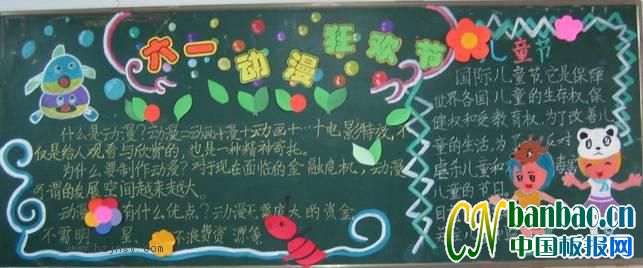 六一动漫狂欢节
什么是动漫?动漫=动画+漫+动画+…十电影特效,不
仅是给人观看与欣赏的,也是一种精神寄托。
为什么要制作动漫?对于现在面临的金融危机,动漫
可谓的发展空间越来越大。
动漫 有什么优点?动漫不需 大的资金,
不需明 星 不浪费资源等
儿童节
国际儿童节,它是保障
世界各国儿童的生存权、保
健权和受教育权,为了改善儿
童的生活,为了 反对
虐杀儿童和
儿童的节日。
CN banbao.cn
中国板报网